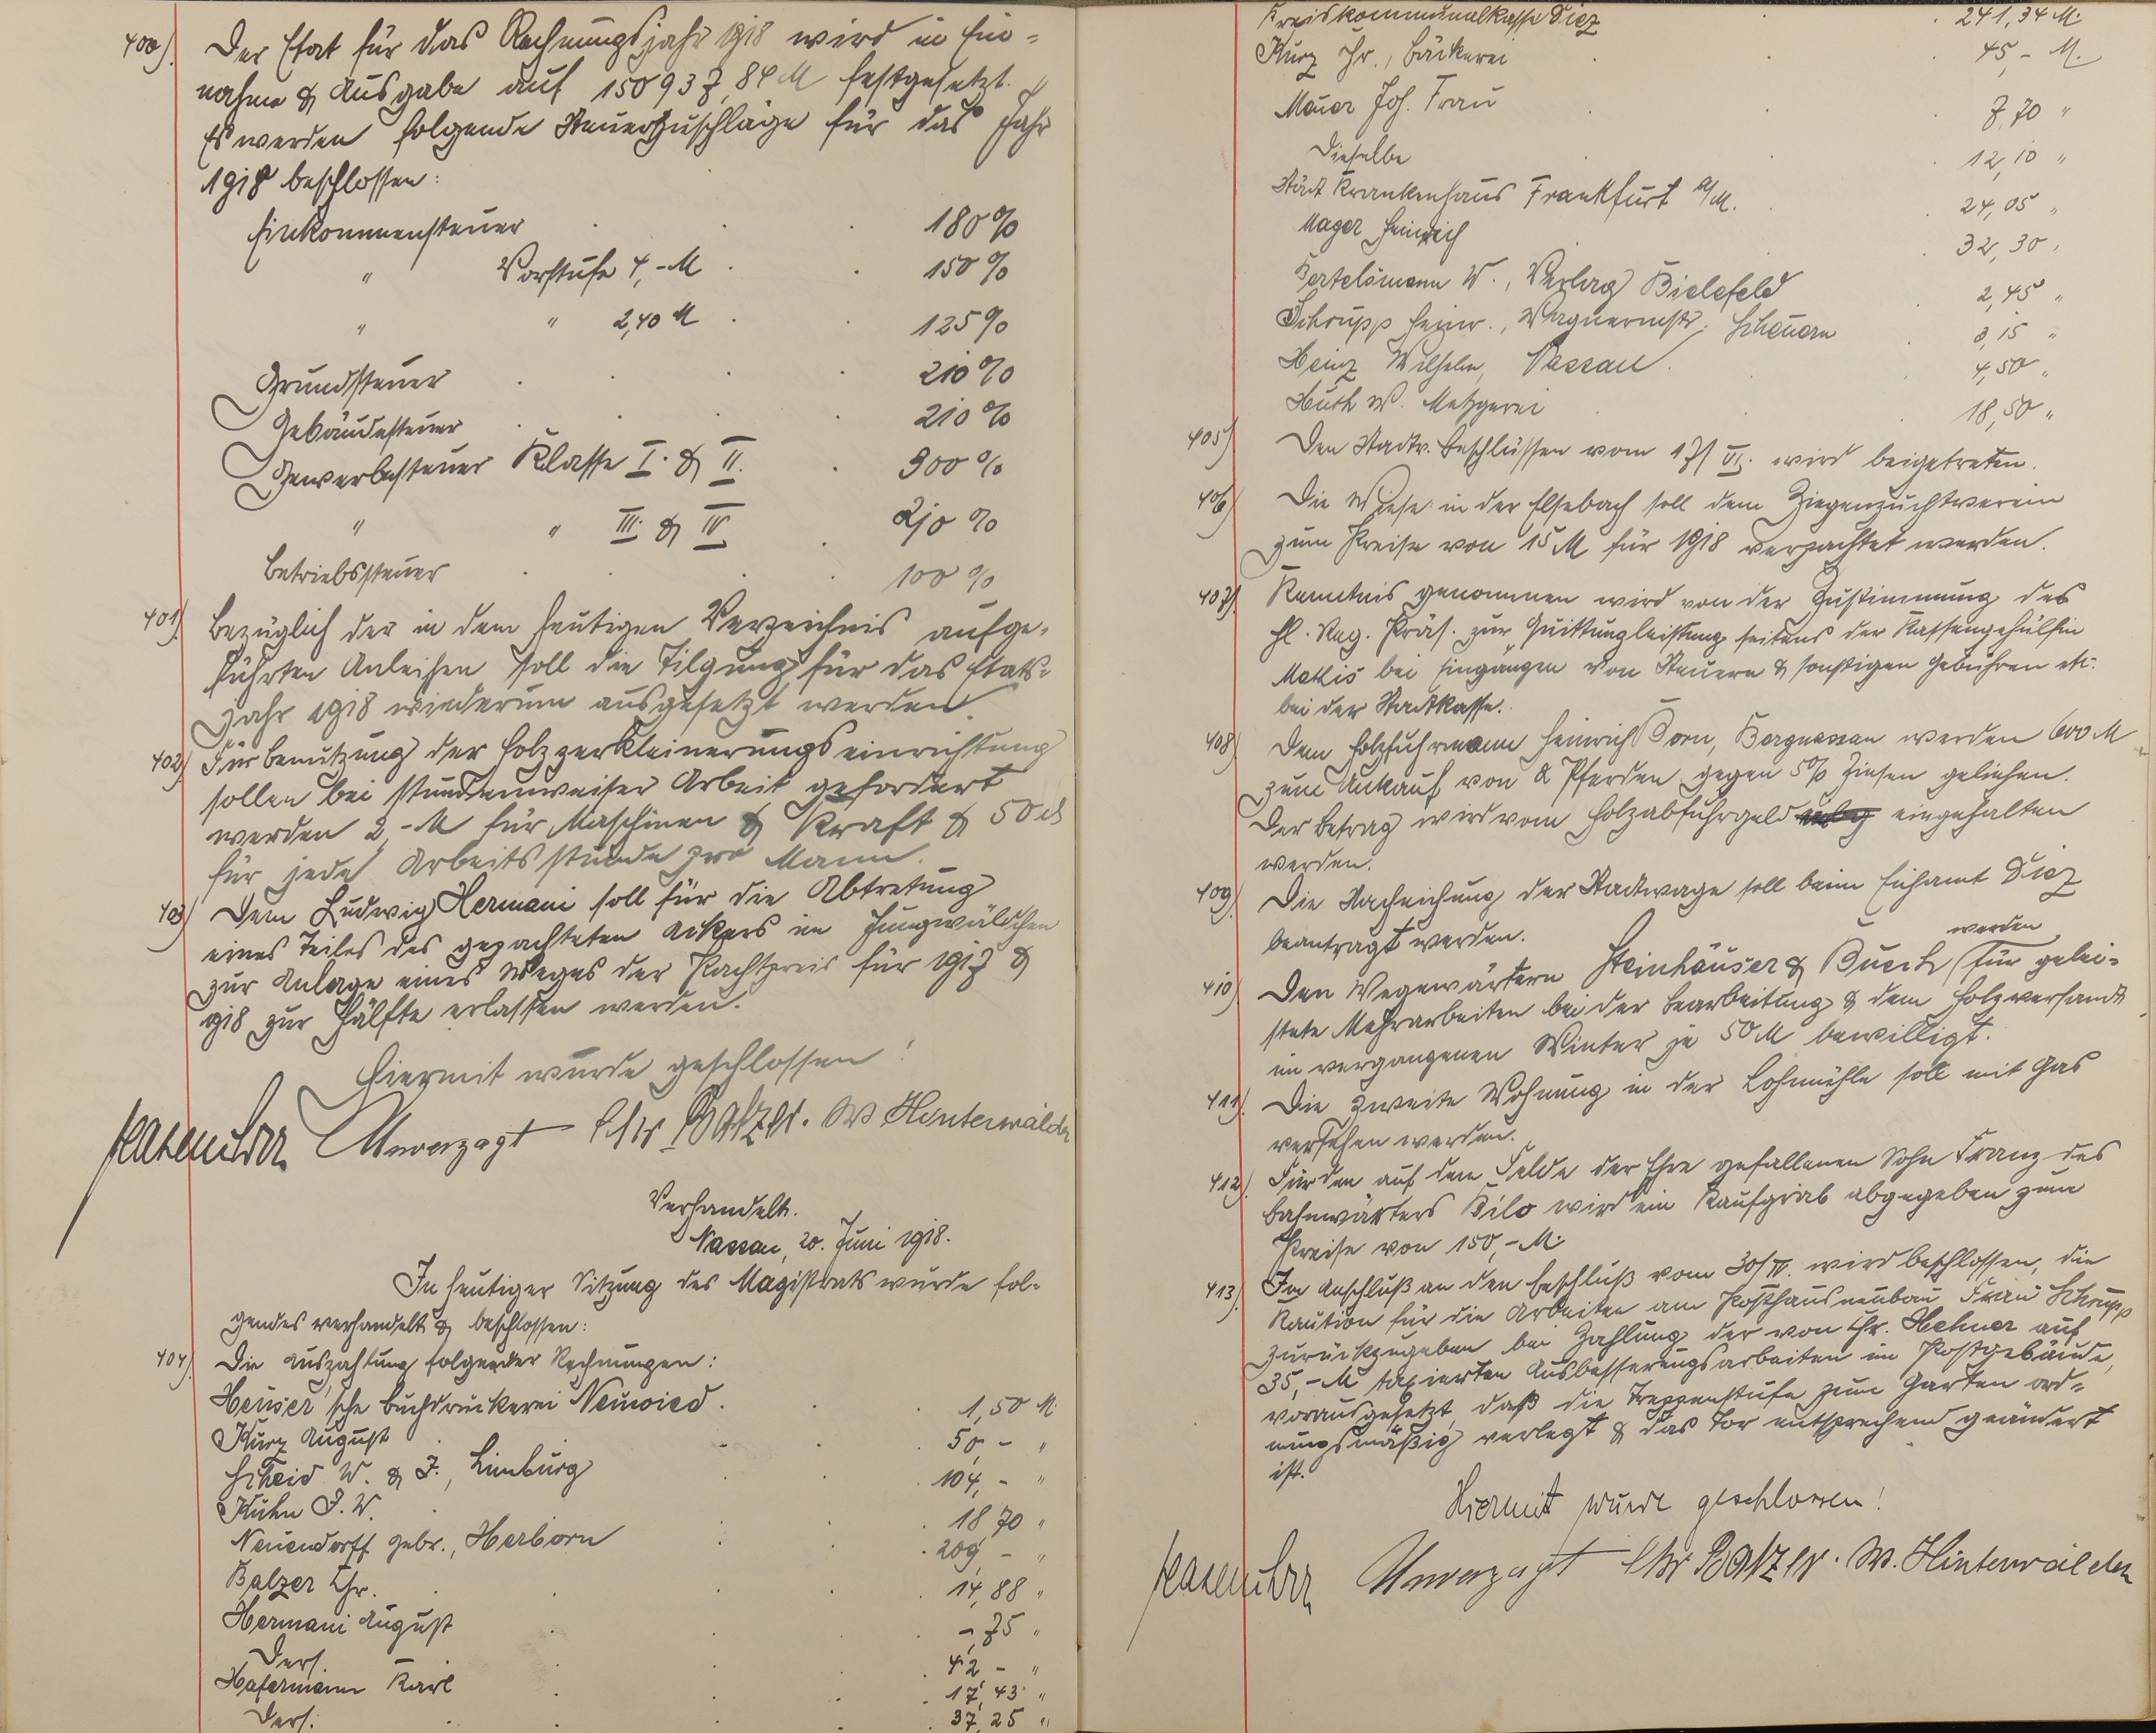 400) Der Etat für das Rechnungsjahr 1918 wird in Ein-
nahme & Ausgabe auf 150937,84 M festgesetzt.
Es werden folgende Steuerzuschläge für das Jahr
1918 beschlossen:
Einkommensteuer . . . 180%
" Vorstufe 4,-M . . 150%
" " 2,40 M . . 125%
Grundsteuer . . . . 210%
Gebäudesteuer . . . . 210%
Gewerbesteuer Klasse I. & II. . 300%
" " III. & IV. . 210%
Betriebssteuer . . . . 100%
401) Bezüglich der in dem heutigen Verzeichnis aufge-
führten Anleihen soll die Tilgung für das Etats-
jahr 1918 wiederum ausgesetzt werden.
402) Für Benutzung der Holzzerkleinerungseinrichtung
sollen bei stundenweiser Arbeit gefordert
werden 2,-M für Maschinen & Kraft & 50 ₰
für jede Arbeitsstunde pro Mann.
403) Dem Ludwig Hermani soll für die Abtretung
eines Teiles des gepachteten Ackers im Jungwäldchen
zur Anlage eines Weges der Pachtpreis für 1917 &
1918 zur Hälfte erlassen werden.
Hiermit wurde geschlossen!
Hasenclever Unverzagt Chr Balzer. W Hinterwälder
Verhandelt.
Nassau, 20. Juni 1918.
In heutiger Sitzung des Magistrats wurde fol-
gendes verhandelt & beschlossen:
404) Die Auszahlung folgender Rechnungen:
Heuser'sche Buchdruckerei Neuwied . . . 1,50 M.
Kurz August . . . 50,- "
Scheid W. & F., Limburg . . 104,- "
Kuhn J. W. . . . 18,70 "
Neuendorff Gebr., Herborn . . . 209,- "
Balzer Chr. . . . . 14,88 "
Hermani August . . . -,75 "
Ders. . . . . 42,- "
Hafermann Karl . . . . 17,43 "
Ders. . . . . 37,25 "
Kreiskommunalkasse Diez . . 241,34 M.
Kurz Chr., Bäckerei . . 45,- M.
Mauer Joh. Frau . . 7,70 "
Dieselbe . . . 12,10 "
Städt Krankenhaus Frankfurt a/M. . . 24,05 "
Mager Heinrich . 32,30 "
Bertelsmann W., Verlag Bielefeld . 2,45 "
Schrupp Heinr., Wagnermstr. Scheuern . 3,15 "
Heinz Wilhelm, Nassau . . 4,50 "
Huth W. Metzgerei . . 18,50 "
405) Den Stadtv. Beschlüssen vom 17/VI. wird beigetreten.
406) Die Wiese in der Elsebach soll dem Ziegenzuchtverein
zum Preise von 15 M für 1918 verpachtet werden.
407) Kenntnis genommen wird von der Zustimmung des
H. Reg. Präs. zur Quittungleistung seitens der Kassengehülfin
bei Eingängen von Steuern & sonstigen Gebühren etc.
bei der Stadtkasse.
408) Dem Holzfuhrmann Heinrich Dorn, Bergnassau werden 600 M
zum Ankauf von 2 Pferden gegen 5% Zinsen geliehen.
Der Betrag wird vom Holzabfuhrgeld eingehalten
werden.
409) Die Nacheichung der Stadtwage soll beim Eichamt Diez
beantragt werden.
410) Den Wegewärtern Steinhäuser & Busch werden für gelei-
stete Mehrarbeiten bei der Bearbeitung & dem Holzversandt
im vergangenen Winter je 50 M bewilligt.
411) Die zweite Wohnung in der Lohmühle soll mit Gas
versehen werden.
412) Für den auf dem Felde der Ehre gefallenen Sohn Franz des
Bahnwärters Bilo wird ein Kaufgrab abgegeben zum
Preise von 150,-M.
413) Im Anschluß an den Beschluß vom 30/IV. wird beschlossen, die
Kaution für die Arbeiten am Posthausneubau Frau Schrupp
zurückzugeben bei Zahlung der von Chr. Hehner auf
35,-M taxierten Ausbesserungsarbeiten im Postgebäude,
vorausgesetzt, daß die Treppenstufe zum Garten ord-
nungsmäßig verlegt & das Tor entsprechend geändert
ist.
Hiermit wurde geschlossen!
Hasenclever Unverzagt Chr Balzer. W. Hinterwälder